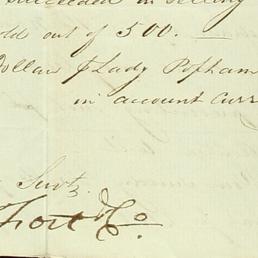 succeeded in selling
old out of 500.
Dollars p Lady Popham
in account curr
Servts
Short & Co.